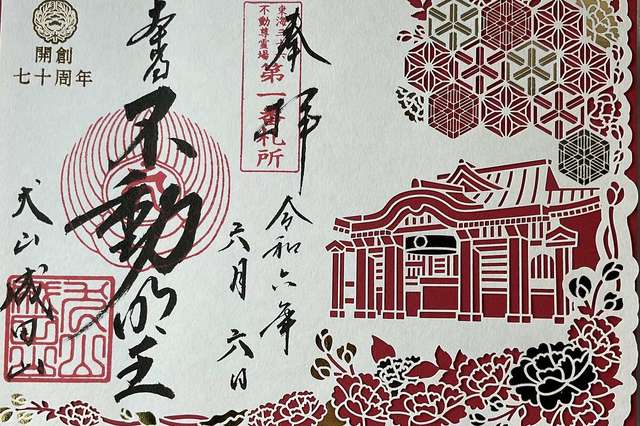 奉拝
東海三十六
不動尊霊場
第一番札所
令和六年
六月六日
本尊
不動明王
犬山成田山
開創
七十周年